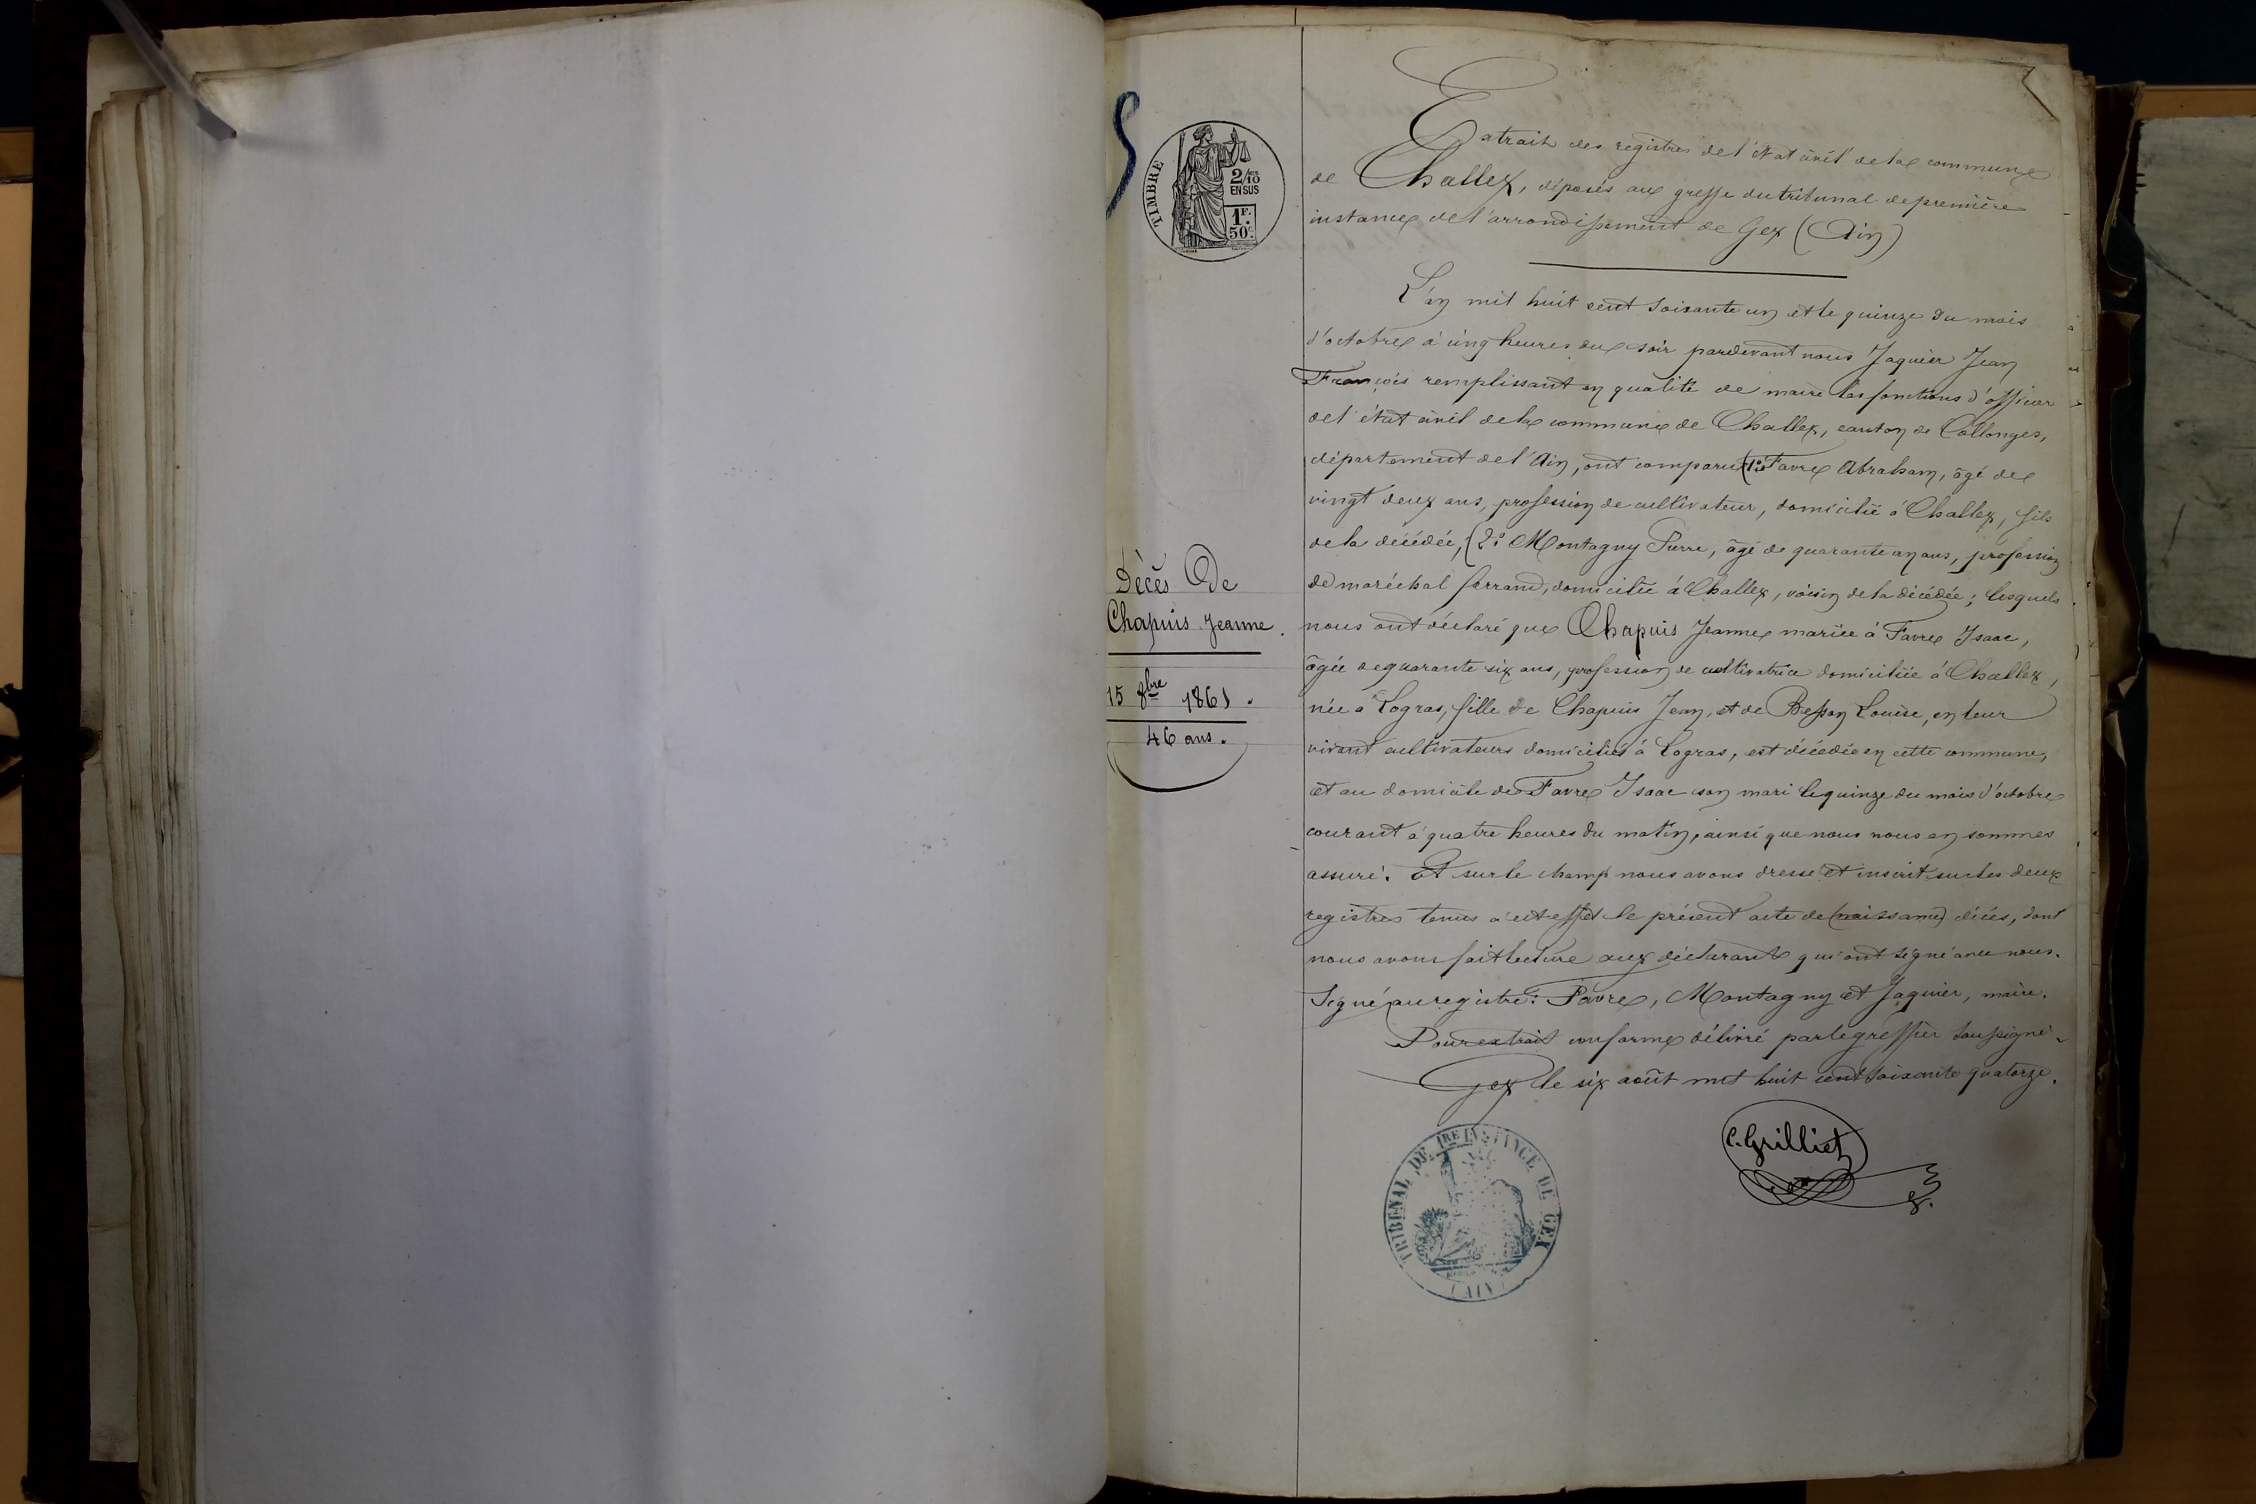 TIMBRE
2/10
EN SUS
1F.
50c.
Extrait des registres de l'état civil de la commune
de Challex, déposés aux greffe du tribunal de première
instance de l'arrondissement de Gex (Ain)
L'an mil huit cent soixante un et le quinze du mois
d'octobre à cinq heures du soir pardevant nous Jaquier Jean
François remplissant en qualité de maire les fonctions d'officier
de l'état civil de la commune de Challex, canton de Collonges,
département de l'Ain, ont comparu (1° Favre Abraham, âgé de
vingt deux ans, profession de cultivateur, domicilié à Challex, fils
de la décédée, (2° Montagny Pierre, âgé de quarante un ans, profession
de maréchal ferrand, domicilié à Challex, voisin de la décédée; lesquels
nous ont déclaré que Chapuis Jeanne mariée à Favre Isaac,
âgée de quarante six ans, profession de cultivatrice domiciliée à Challex,
née à Logras, fille de Chapuis Jean, et de Besson Louise, en leur
vivant cultivateurs domiciliés à Logras, est décédée en cette commune,
et au domicile de Favre Isaac son mari le quinze du mois d'octobre
courant à quatre heures du matin, ainsi que nous nous en sommes
assuré. Et sur le champ nous avons dressé et inscrit sur les deux
registres tenus à cet effet le présent acte de (naissance) décés, dont
nous avons fait lecture aux déclarants qui ont signé avec nous.
Signé au registre: Favre, Montagny et Jaquier, maire.
Pour extrait conforme délivré par le greffier soussigné.
Gex le six août mil huit cent soixante quatorze.
C. Grilliet
Décès De
Chapuis Jeanne.
15 8bre 1861.
46 ans.
TRIBUNAL DE 1RE INSTANCE DE GEX
(AIN)